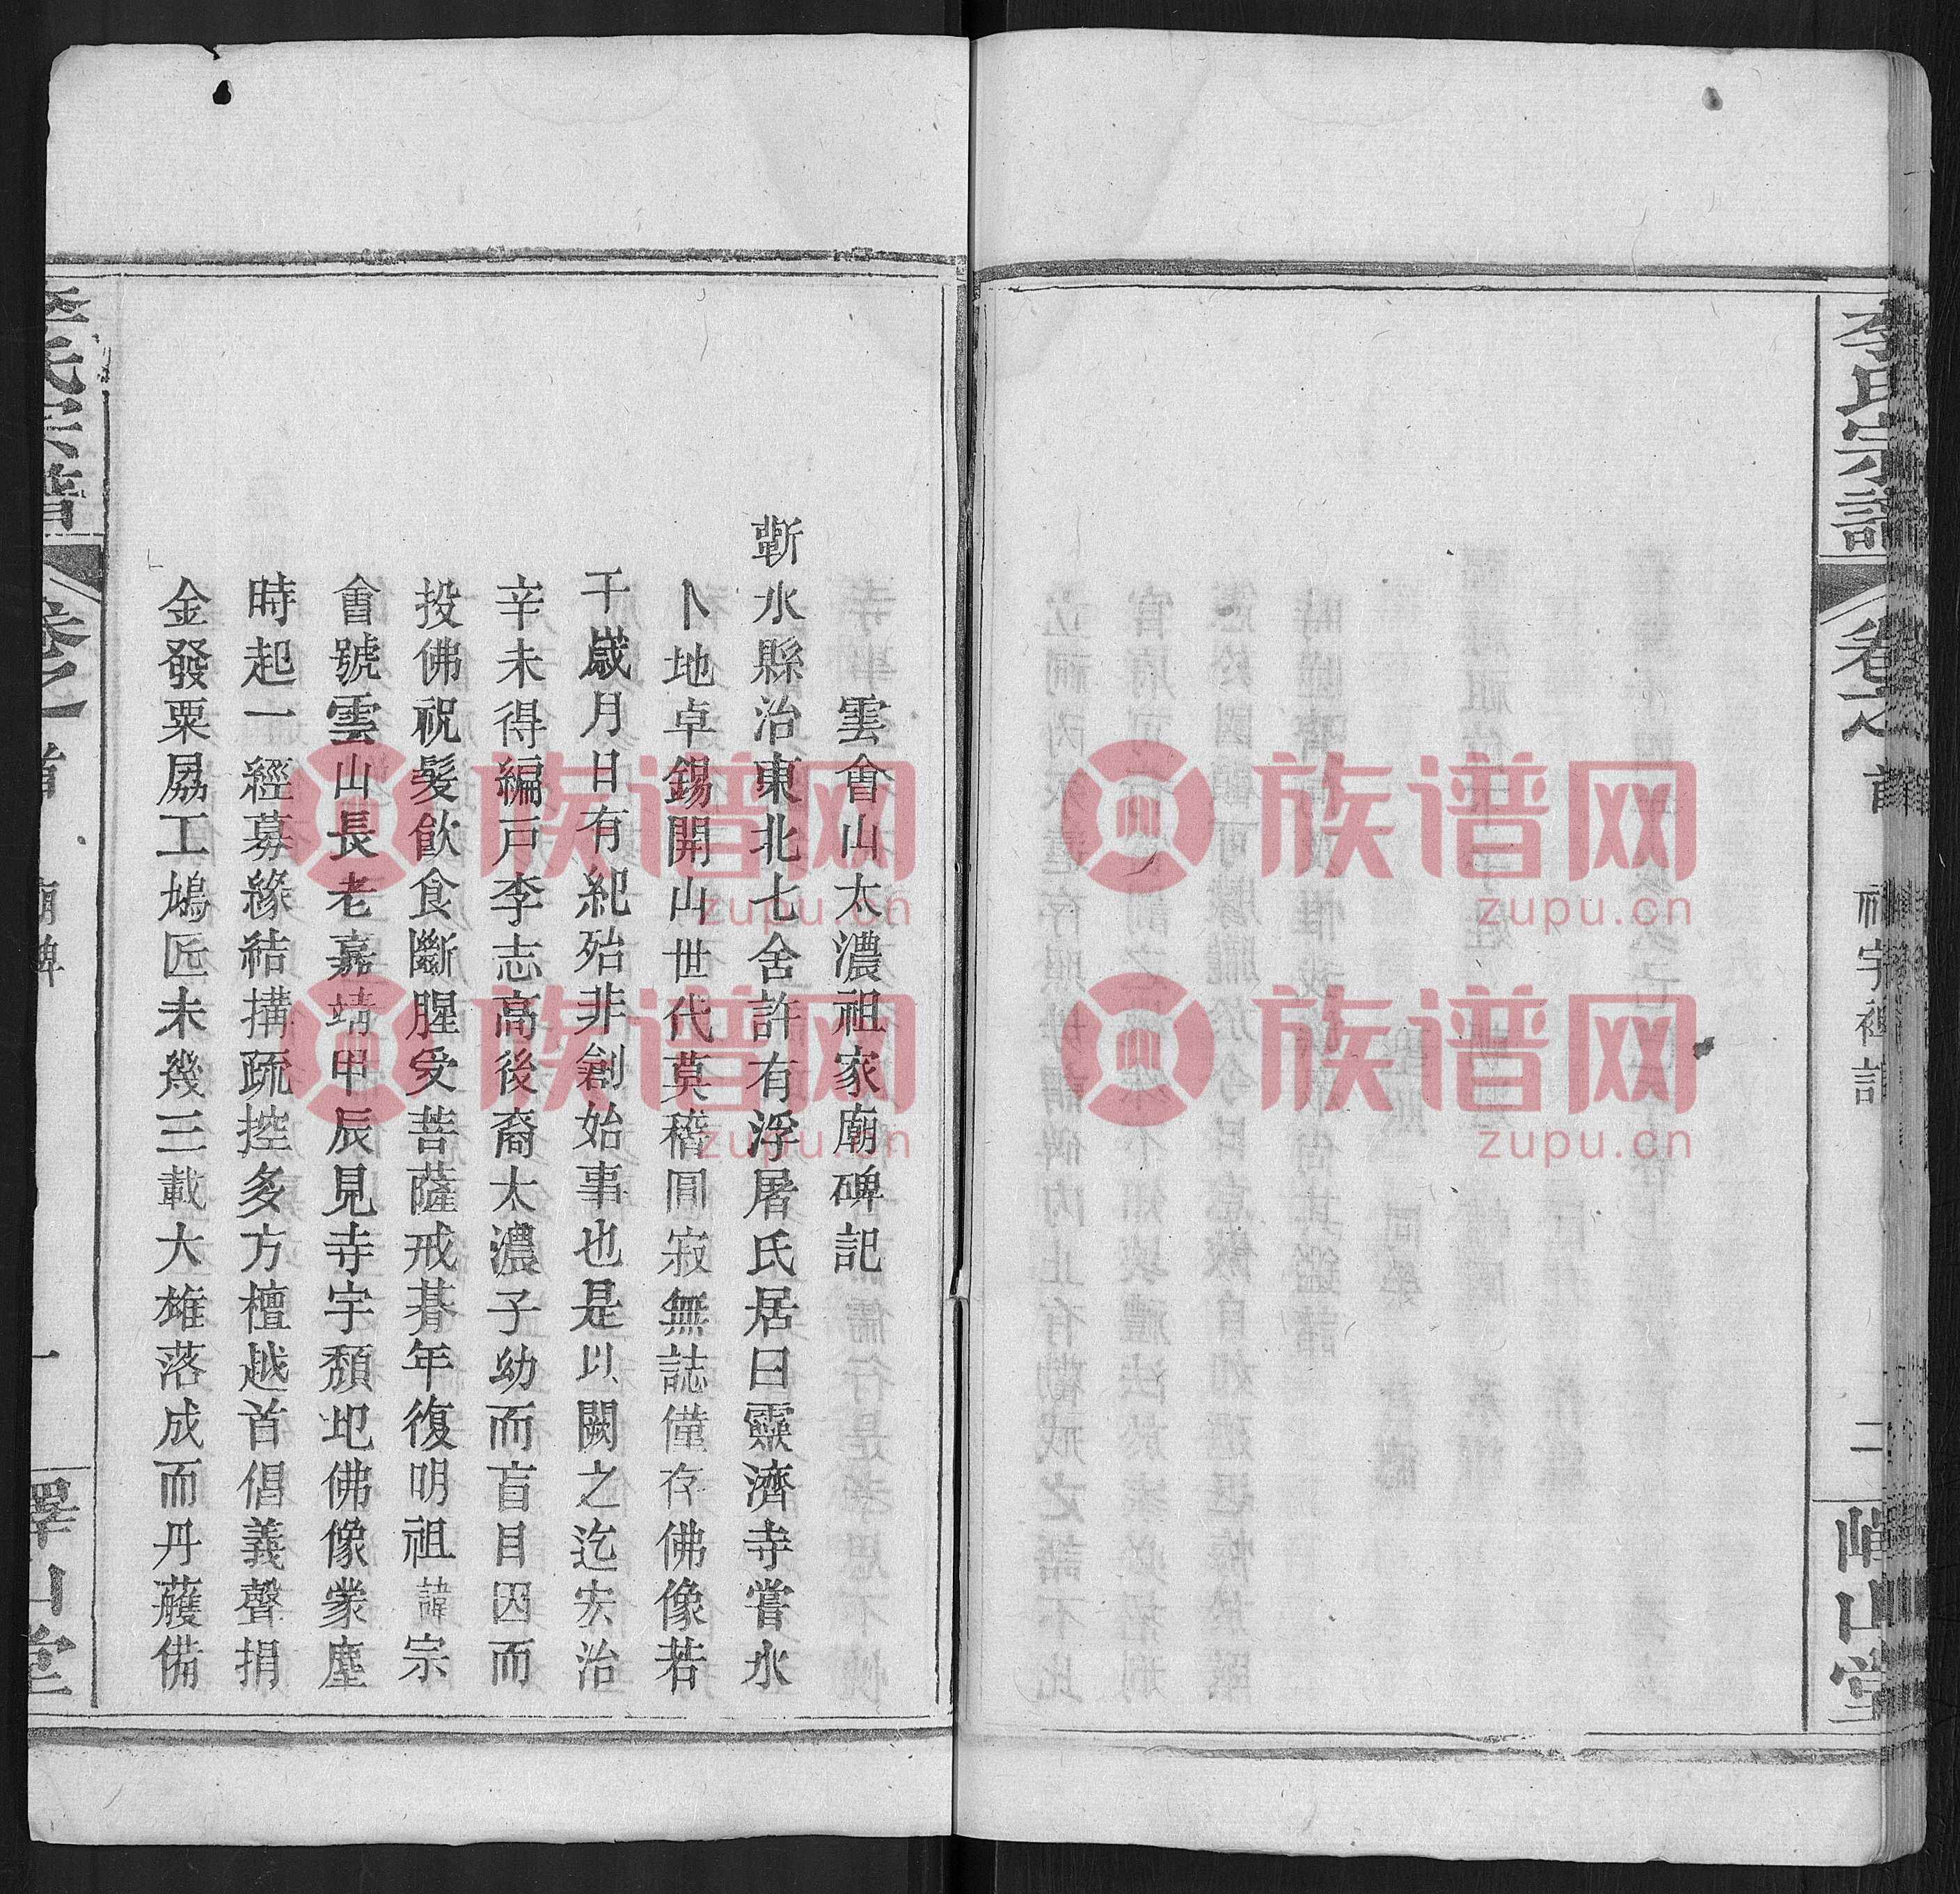 李氏宗譜
卷之首
祠宇禋譜
二
嶧山堂
雲會山太濃祖家廟碑記
蘄水縣治東北七舍許有浮屠氏居曰靈濟寺嘗水
卜地卓錫開山世代莫稽圓寂無誌僅存佛像若
干歲月日有紀殆非創始事也是以闕之迄宏治
辛未得編戸李志高後裔太濃子幼而盲目因而
投佛祝髮飲食斷腥受菩薩戒朞年復明祖諱宗
會號雲山長老嘉靖甲辰見寺宇頹圯佛像蒙塵
時起一經募緣結搆疏控多方檀越首倡義聲捐
金發粟剧工鳩匠未幾三載大雄落成而丹蘸備
李氏宗譜
卷之首
廟碑
一
嶧山堂
族谱网
zupu.cn
族谱网
zupu.cn
族谱网
zupu.cn
族谱网
zupu.cn